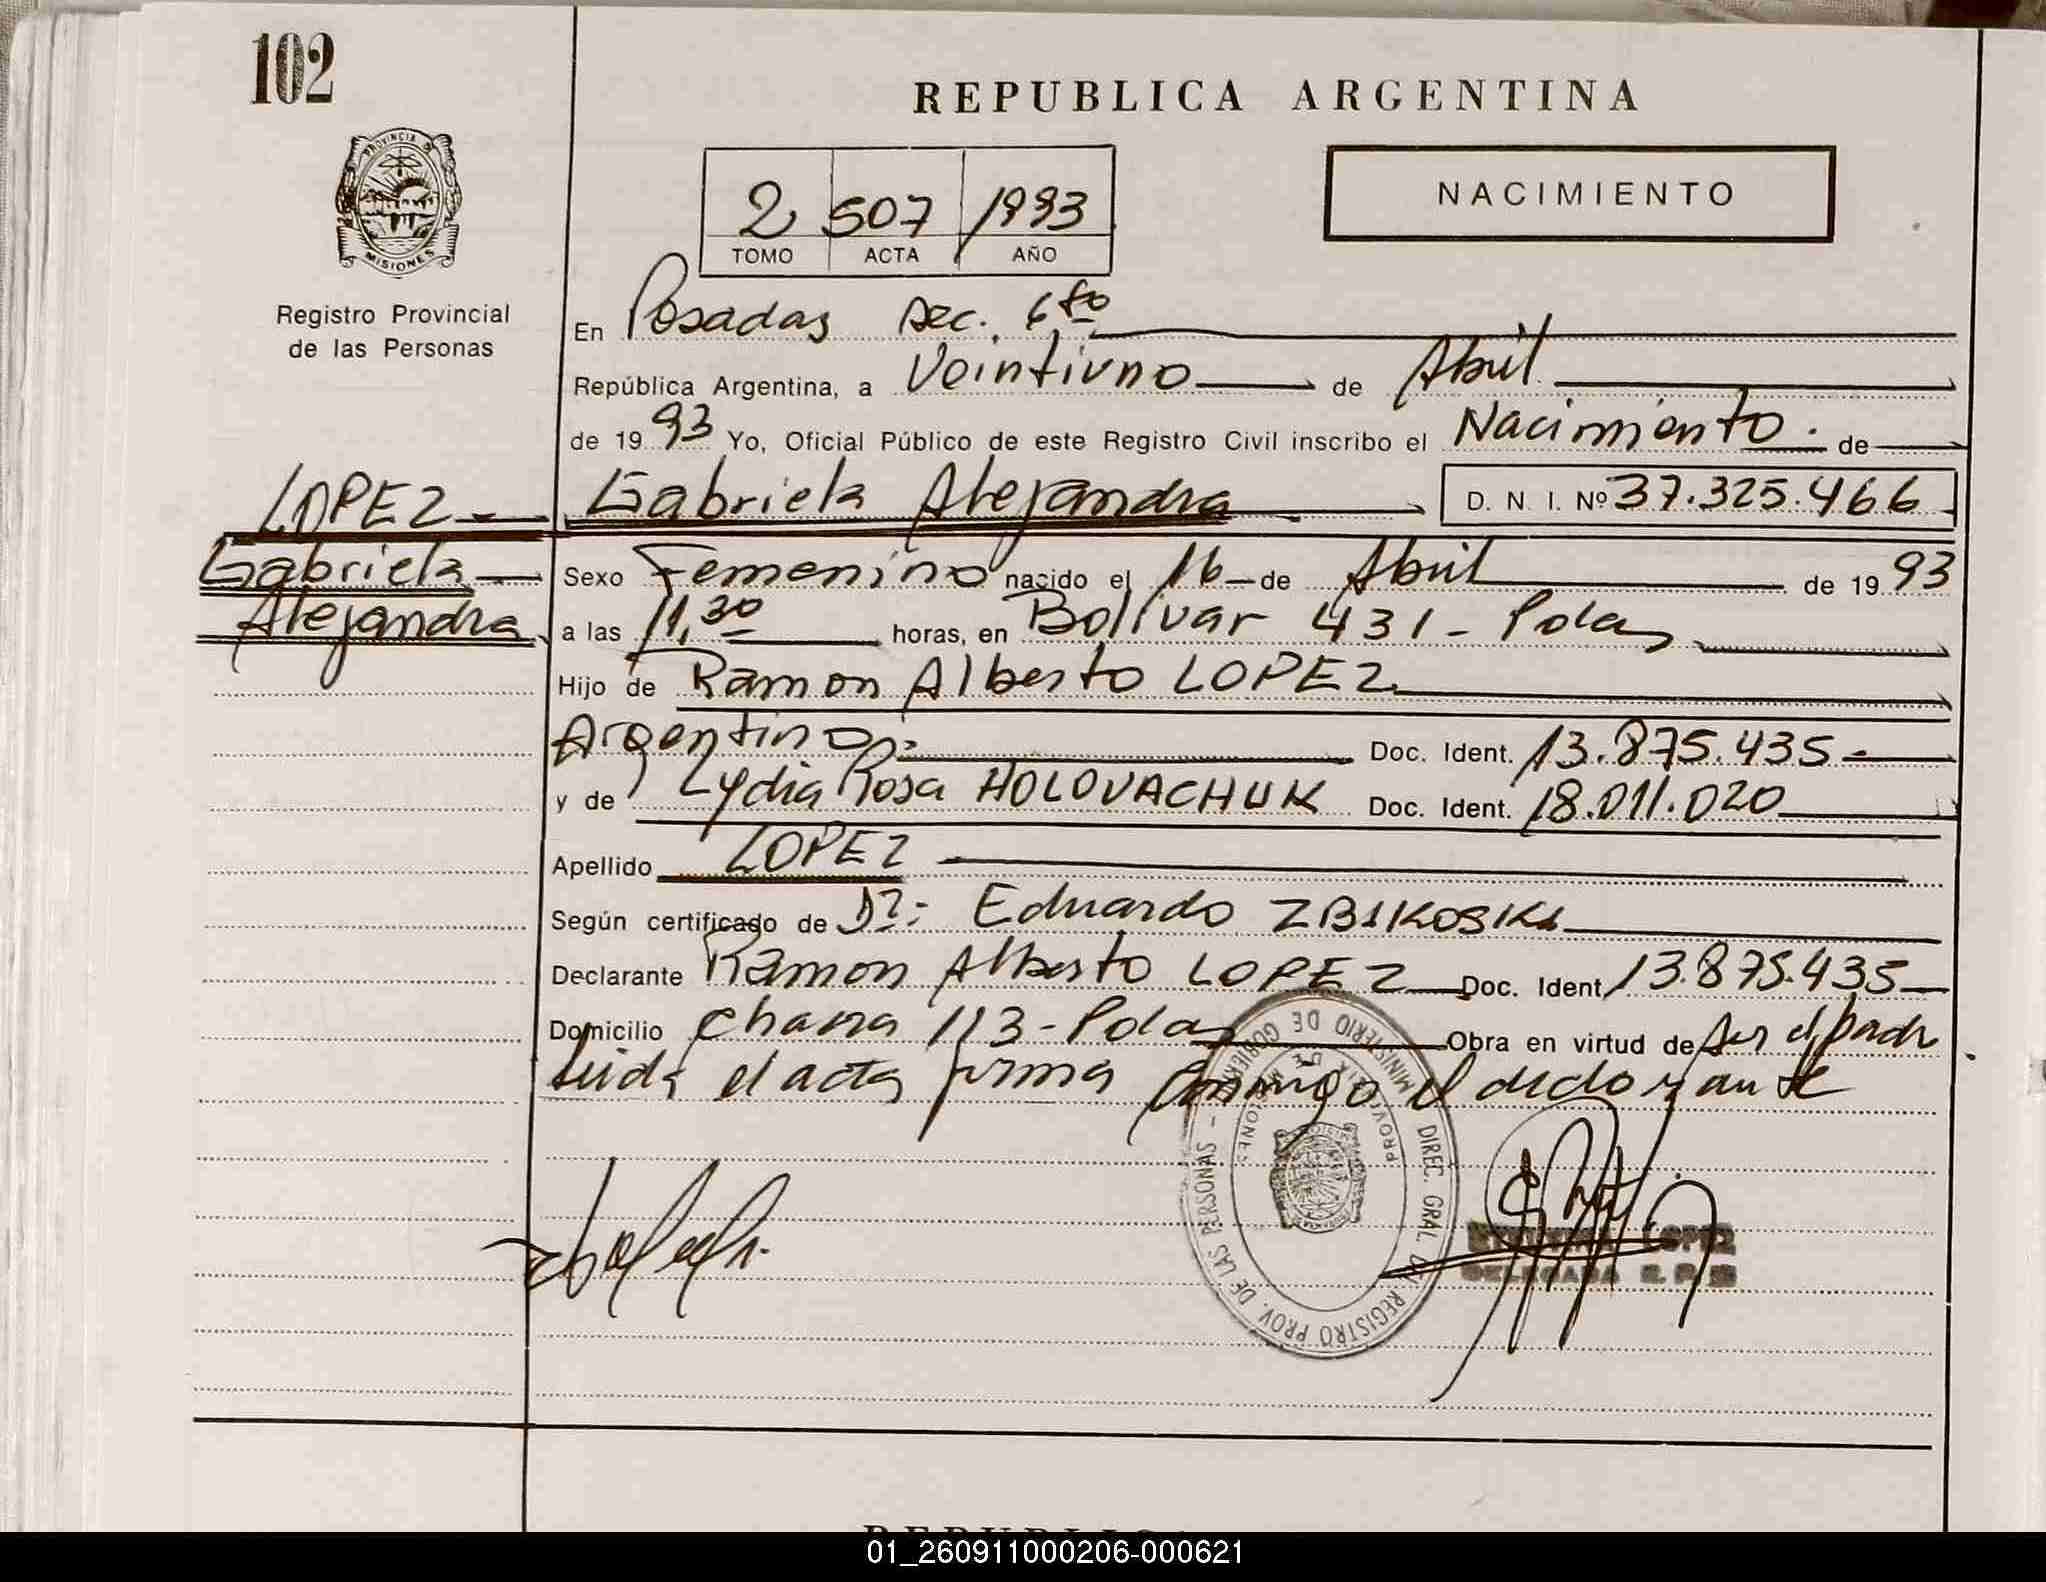 102
REPUBLICA ARGENTINA
PROVINCIA D
MISIONES
2 507 1993
TOMO ACTA AÑO
NACIMIENTO
Registro Provincial
de las Personas
En Posadas sec. 6
República Argentina, a Veintiuno de Abril
de 1993 Yo, Oficial Público de este Registro Civil inscribo el Nacimiento. de
LOPEZ Gabriela Alejandra D. N. I. Nº 37.325.466
Gabriela Sexo Femenino nacido el 16 de Abril de 1993
Alejandra a las 11,30 horas, en Bolívar 431 - Pdas
Hijo de Ramon Alberto LOPEZ
Argentino.- Doc. Ident. 13.875.435-
y de Lydia Rosa HOLOVACHUK Doc. Ident. 18.011.020
Apellido LOPEZ
Según certificado de Dr.: Eduardo ZBIKOSKI
Declarante Ramon Alberto LOPEZ Doc. Ident. 13.875.435
Domicilio 113 - Pdas Obra en virtud de ser el padre
leida el acta firma conmigo el declarante
MINISTERIO DE GOBIERNO
PROV. DE MISIONES
DIREC. GRAL. DEL REGISTRO PROV. DE LAS PERSONAS
LOPEZ
DELEGADA R. P.
01_260911000206-000621